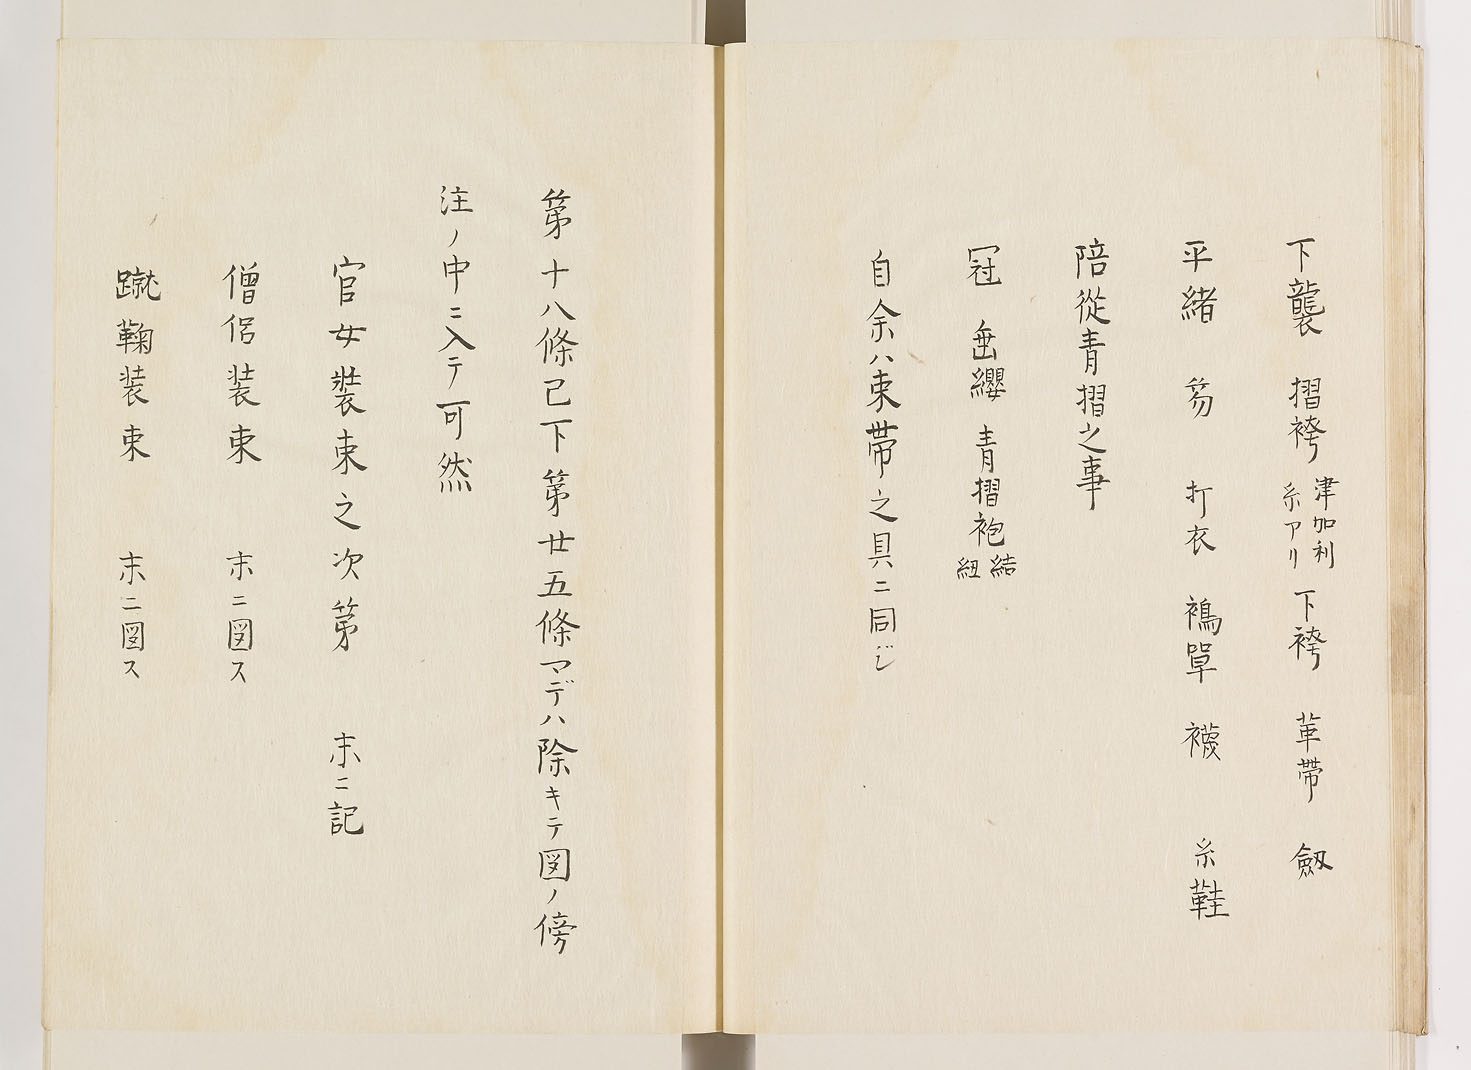 下襲　摺袴　津加利糸アリ　下袴　革帯　劔
平緒　笏　打衣　襔單　襪　糸鞋
陪從青摺之事
冠　垂纓　青摺袍　結紐
自余ハ束帶之具ニ同ジ
第十八條已下第廿五條マデハ除キテ図ノ傍
注ノ中ニ入テ可然
官女裝束之次第　末ニ記
僧侶装束　末ニ図ス
蹴鞠装束　末ニ図ス